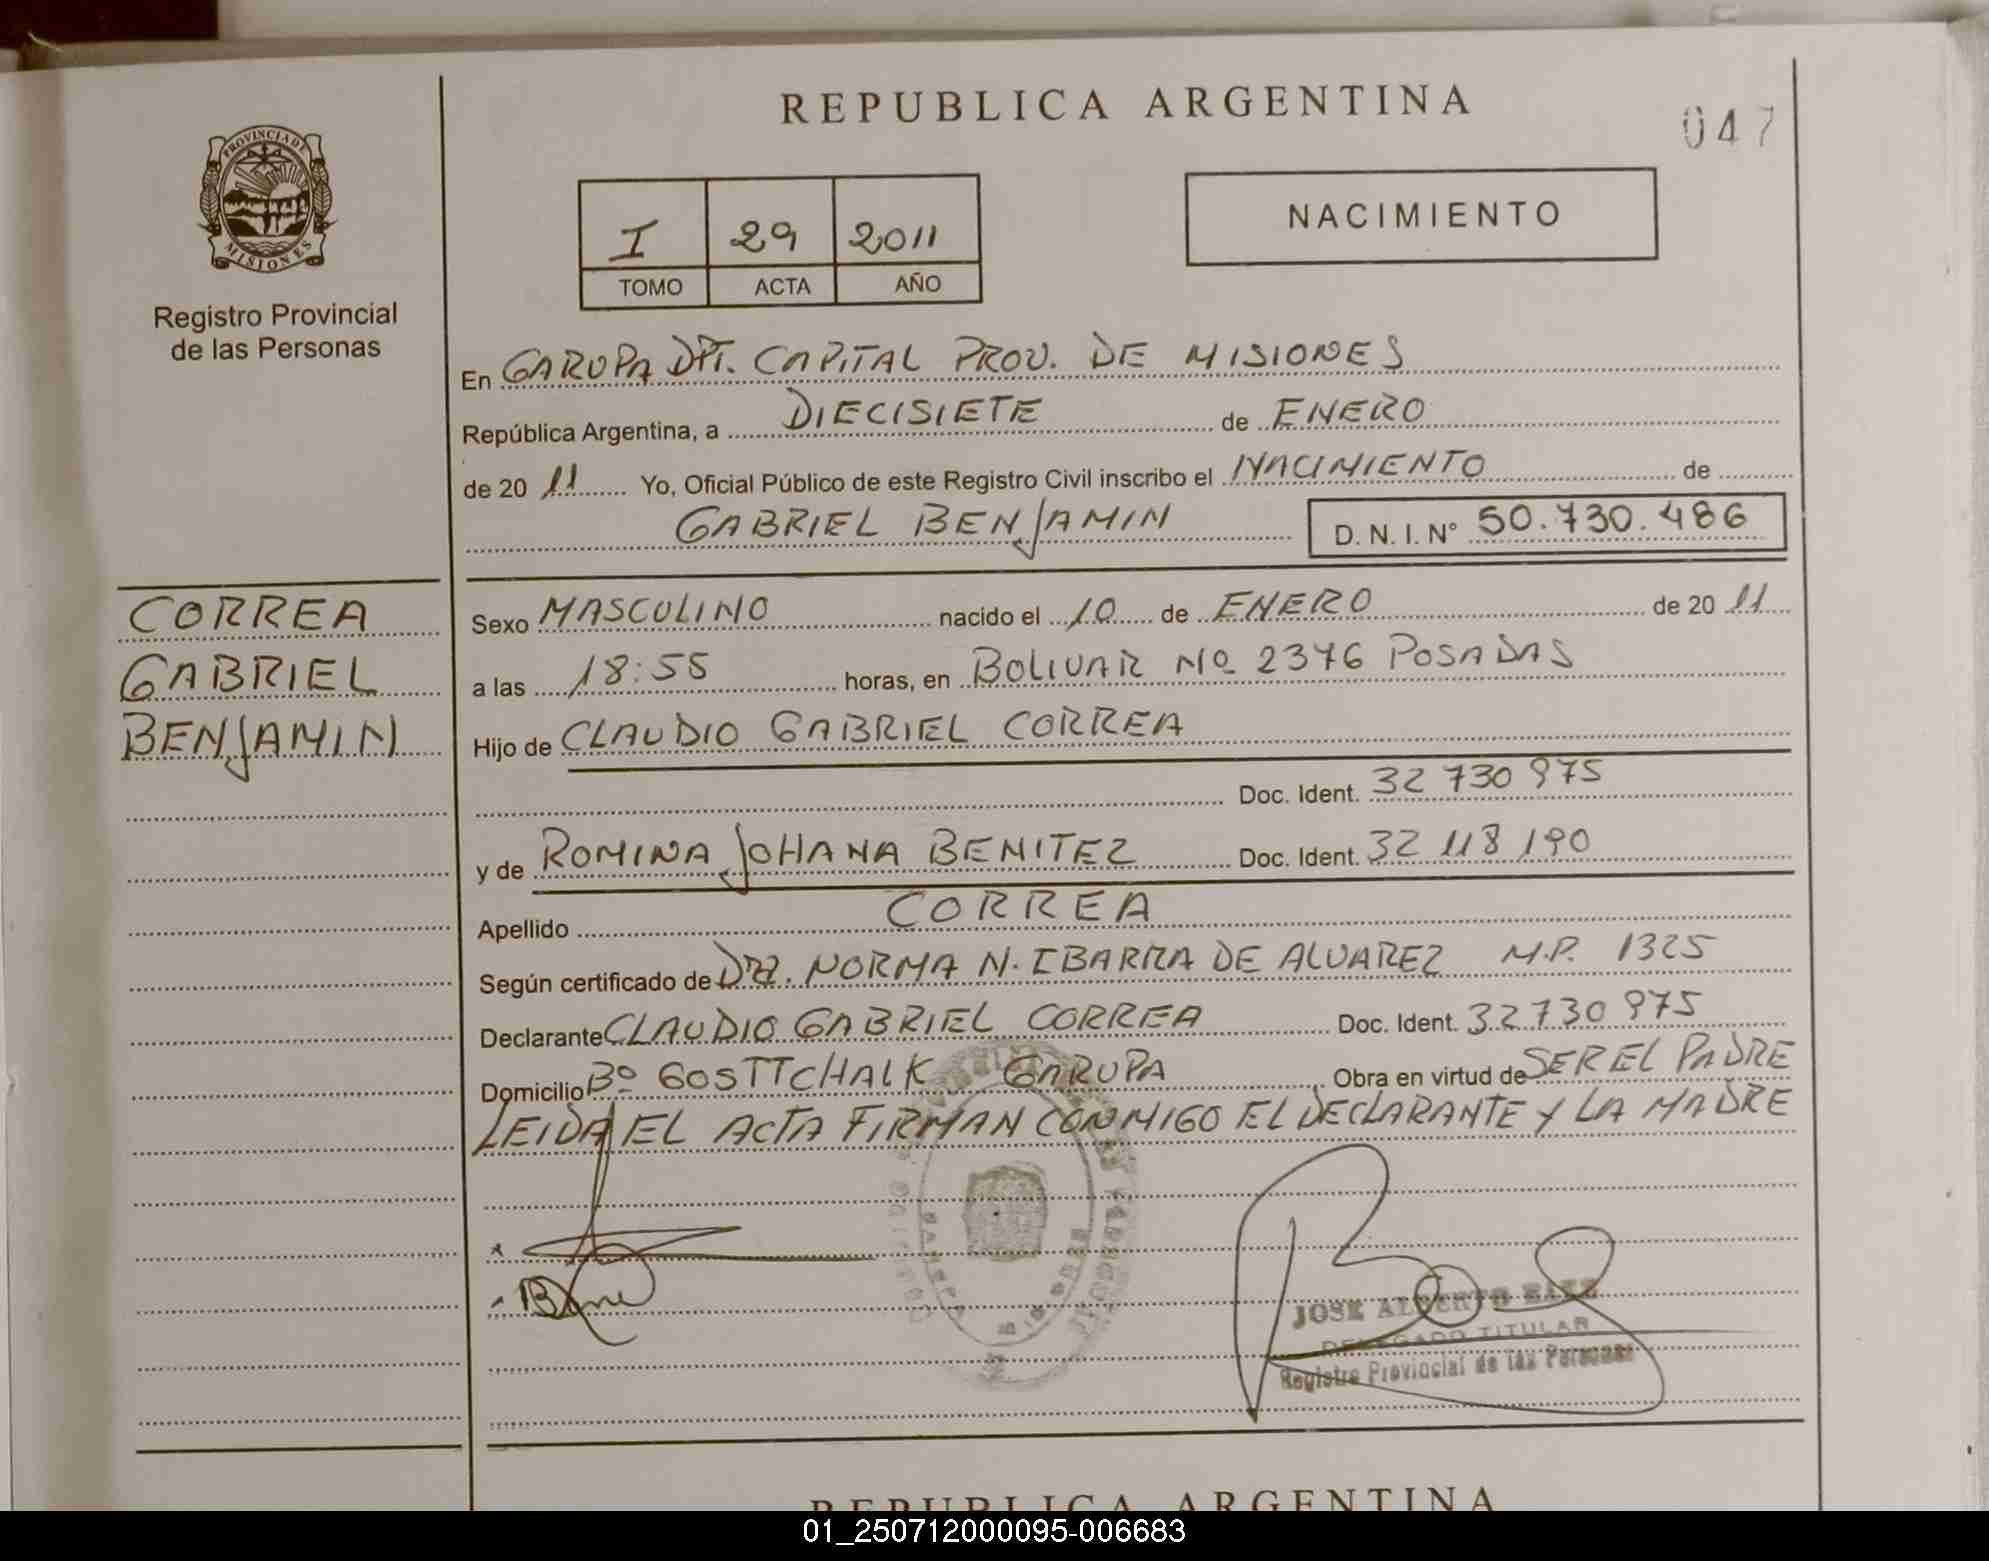 REPUBLICA ARGENTINA
047
PROVINCIA DE
MISIONES
Registro Provincial
de las Personas
I 29 2011
TOMO ACTA AÑO
NACIMIENTO
En GARUPA DPT. CAPITAL PROV. DE MISIONES
República Argentina, a DIECISIETE de ENERO
de 20 11 Yo, Oficial Público de este Registro Civil inscribo el NACIMIENTO de
GABRIEL BENJAMIN D. N. I. Nº 50.730.486
CORREA
GABRIEL
BENJAMIN
Sexo MASCULINO nacido el 10 de ENERO de 20 11
a las 18:55 horas, en BOLIVAR Nº 2376 POSADAS
Hijo de CLAUDIO GABRIEL CORREA
Doc. Ident. 32 730 975
y de ROMINA JOHANA BENITEZ Doc. Ident. 32 118 190
Apellido CORREA
Según certificado de DRA. NORMA N. IBARRA DE ALVAREZ M.P. 1325
Declarante CLAUDIO GABRIEL CORREA Doc. Ident. 32730 975
Domicilio Bº GOSTTCHALK GARUPA Obra en virtud de SER EL PADRE
LEIDA EL ACTA FIRMAN CONMIGO EL DECLARANTE Y LA MADRE
JOSE ALBERTO
DELEGADO TITULAR
Registro Provincial de las Personas
REPUBLICA ARGENTINA
01_250712000095-006683